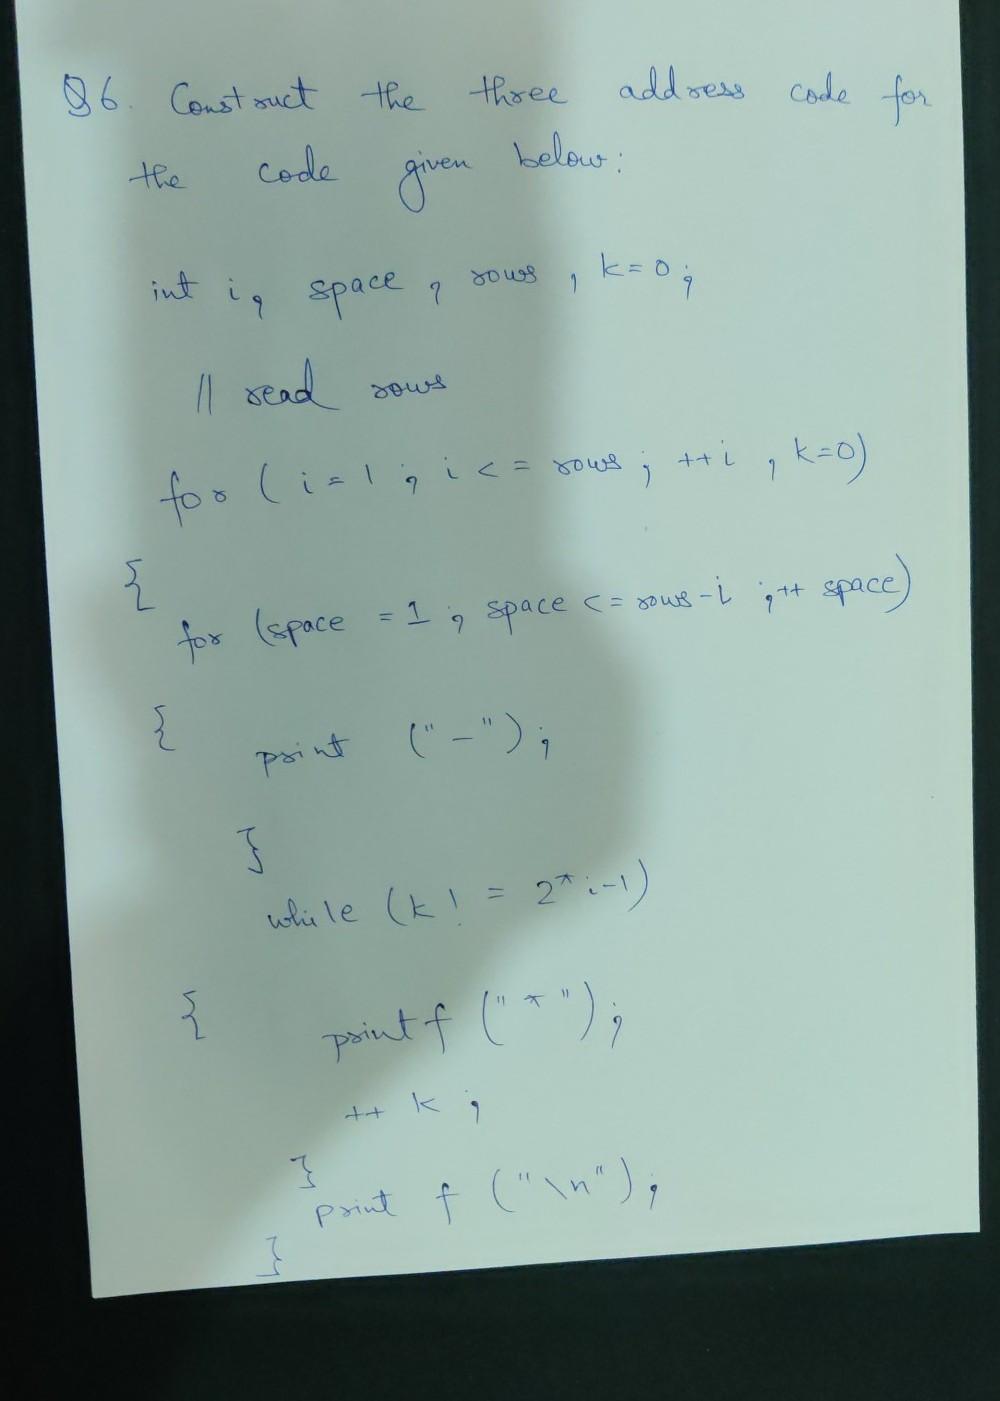 Q6. Construct the three address code for
the code given below:
int i, space, rows, k=0;
// read rows
for (i=1; i<=rows; ++i, k=0)
{
for (space =1; space <= rows-i; ++ space)
{ print ("-");
}
while (k! = 2*i-1)
{ printf ("*");
++ k;
}
print f ("\n");
}